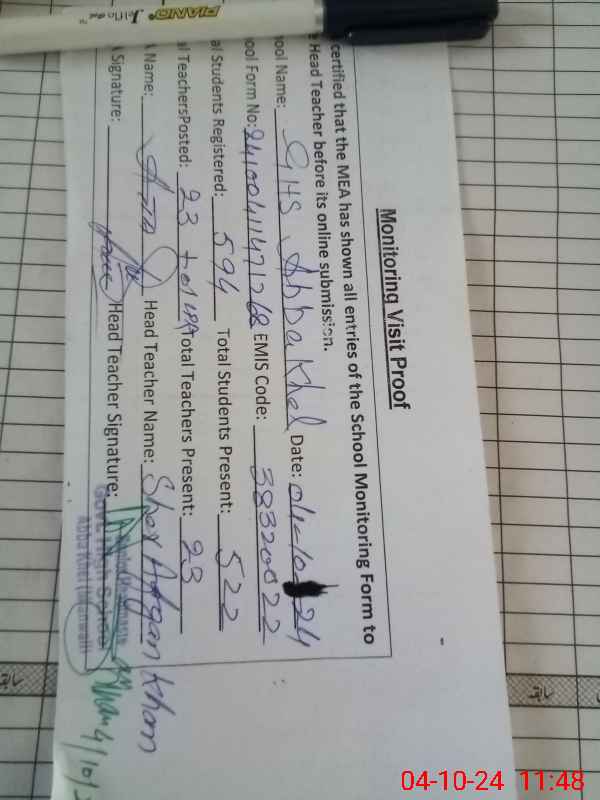 PIANO
Monitoring Visit Proof
certified that the MEA has shown all entries of the School Monitoring Form to
Head Teacher before its online submission.
ool Name: GHS Abba Khel Date: 04-10-24
ool Form No: EMIS Code: 38320022
al Students Registered: 594 Total Students Present: 522
al TeachersPosted: 23 Total Teachers Present: 23
A Name: Head Teacher Name: Sher Afgan Khan
A Signature: Head Teacher Signature:
Govt. High School
Abba Khel (Mianwali)
4/10/
04-10-24 11:48